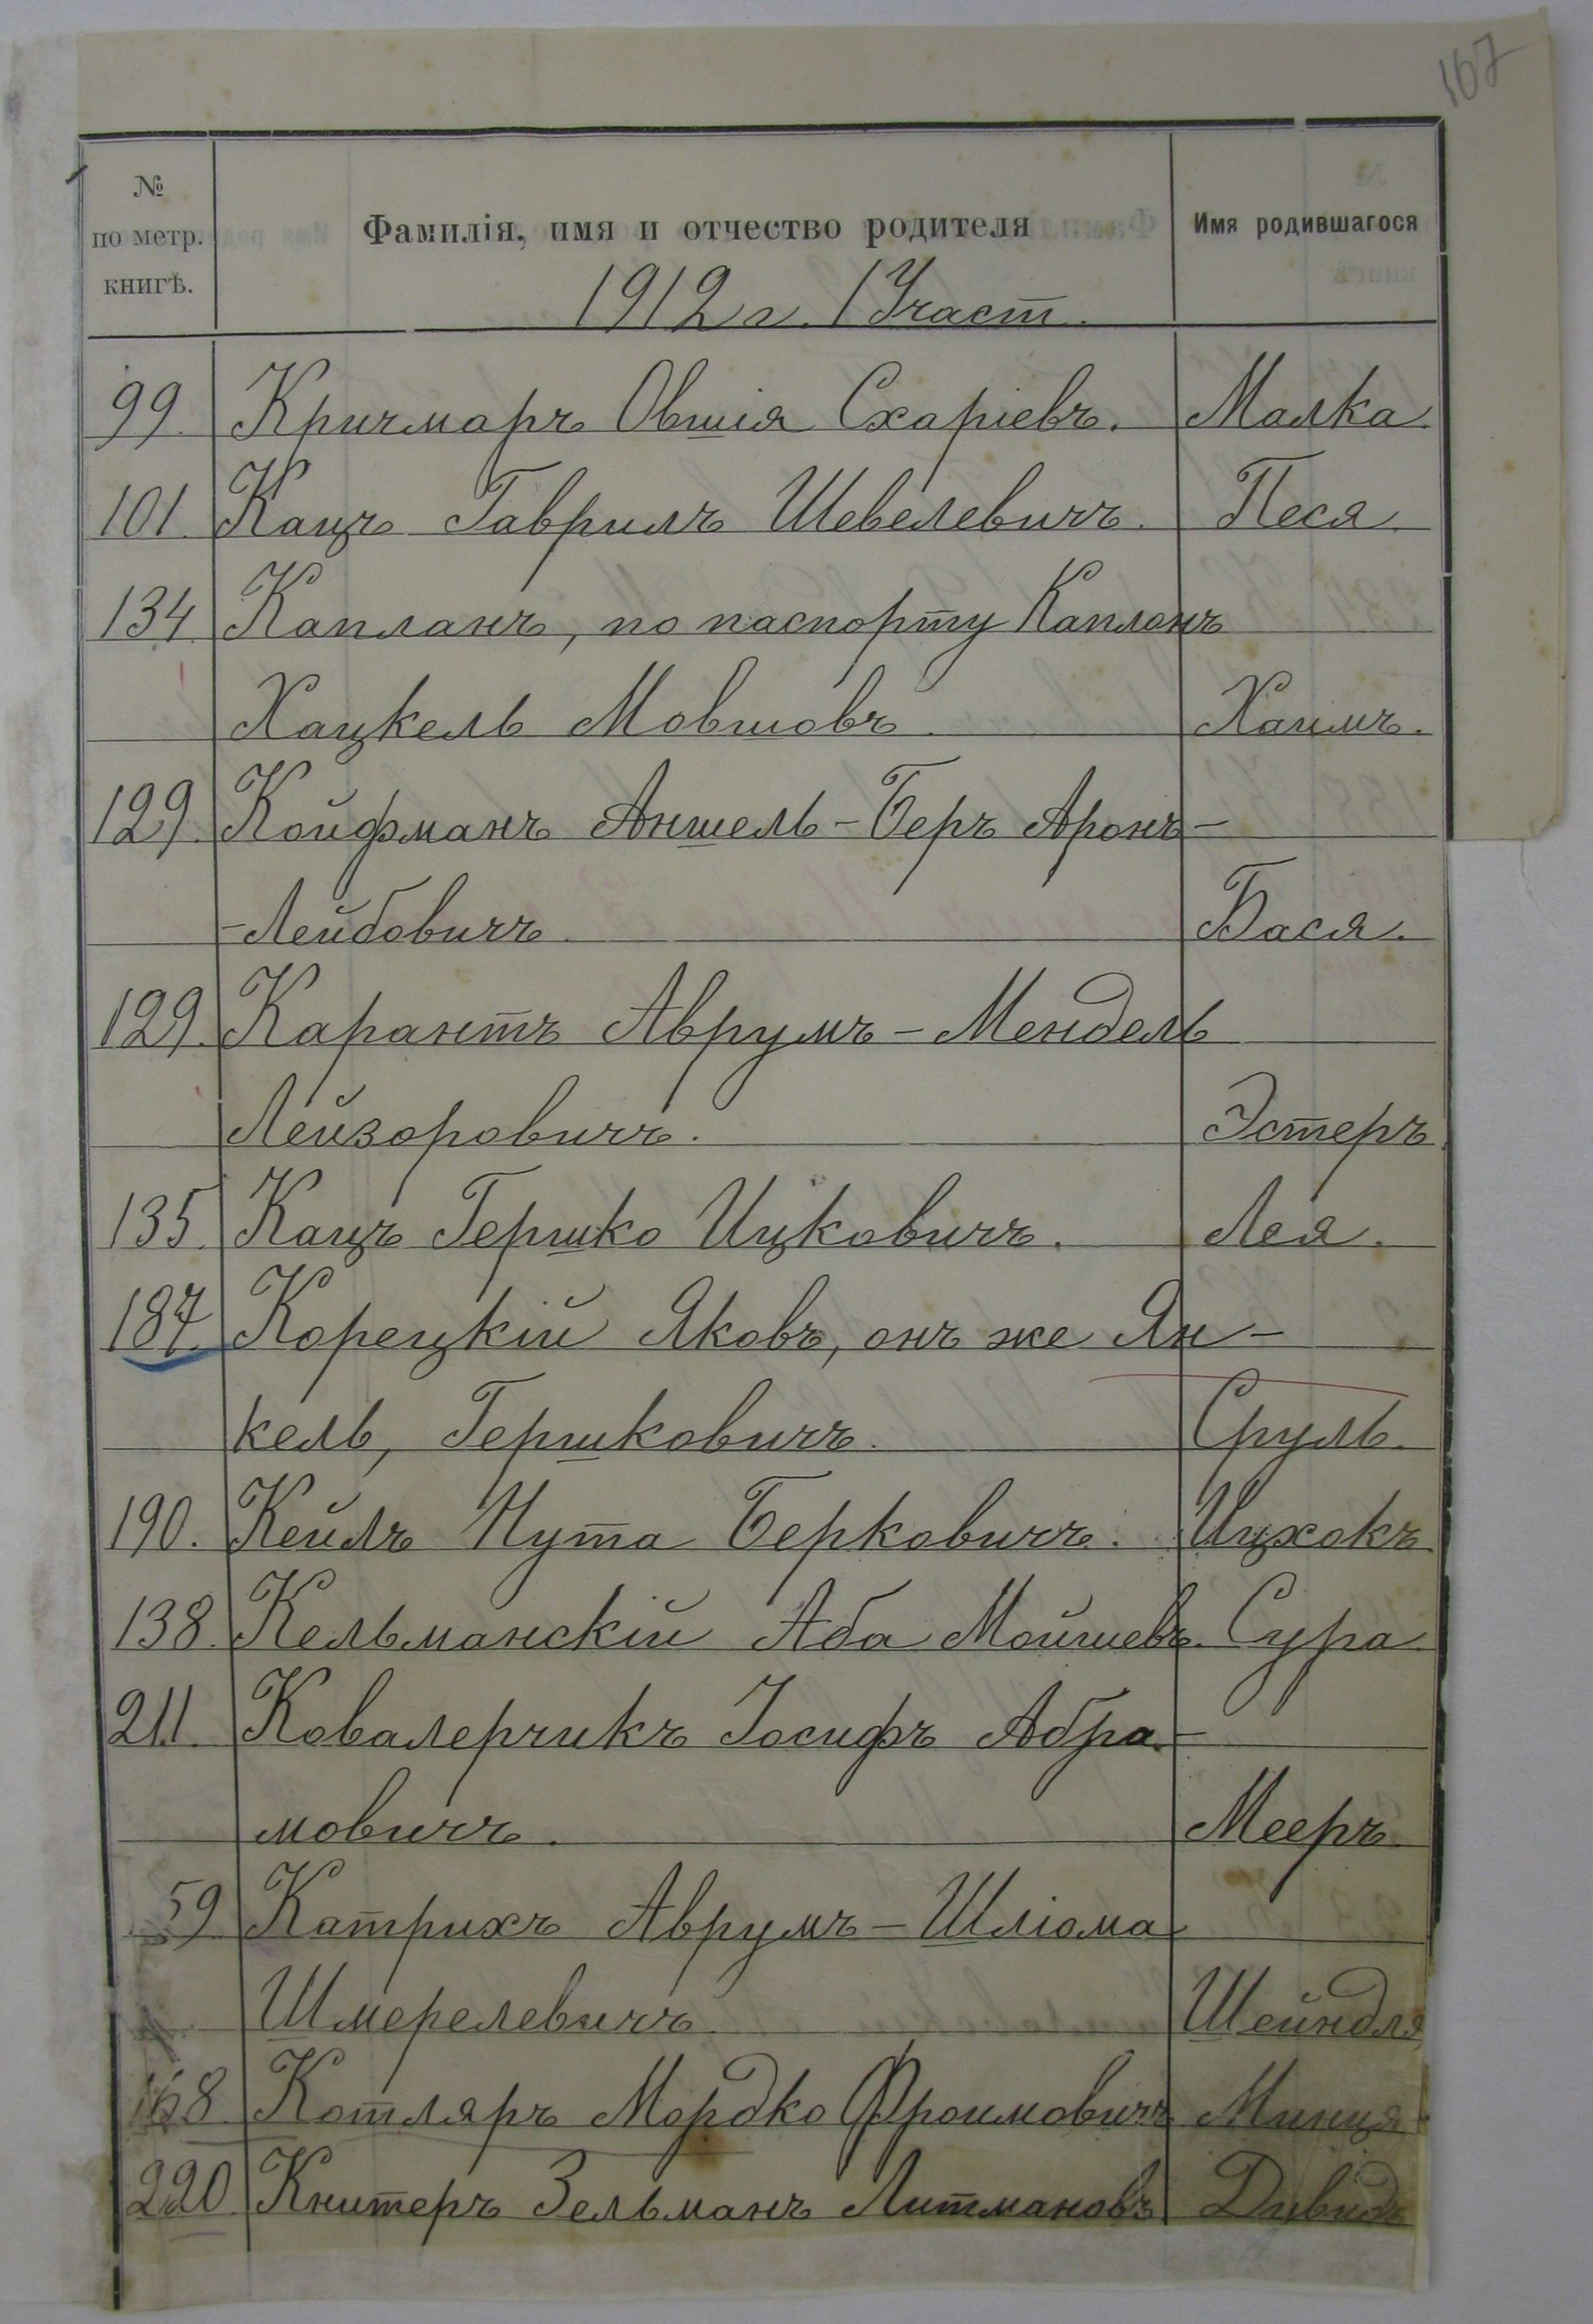 167
№
по метр.
книгѣ.
Фамилія, имя и отчество родителя
Имя родившагося
1912 г. 1 Участ.
99. Кричмаръ Овшія Схаріевъ. Малка.
101. Кацъ Гаврилъ Шевелевичъ. Песя.
134. Капланъ, по паспорту Каплонъ
Хацкель Мовшовъ. Хаимъ.
129. Койфманъ Аншель-Беръ Аронъ-
-Лейбовичъ. Бася.
129. Карантъ Аврумъ-Мендель
Лейзоровичъ. Эстеръ.
135. Кацъ Гершко Ицковичъ. Лея.
187. Корецкій Яковъ, онъ же Ян-
кель, Гершковичъ. Сруль.
190. Кейлъ Нута Берковичъ. Ицхокъ.
138. Кельманскій Аба Мойшевъ. Сура.
211. Ковалерчикъ Іосифъ Абра-
мовичъ. Мееръ.
59 Катрихъ Аврумъ-Шліома
Шмерелевичъ. Шейндля
168. Котляръ Мордко Фроимовичъ Минця
220. Книтеръ Зельманъ Литмановъ Дивидъ